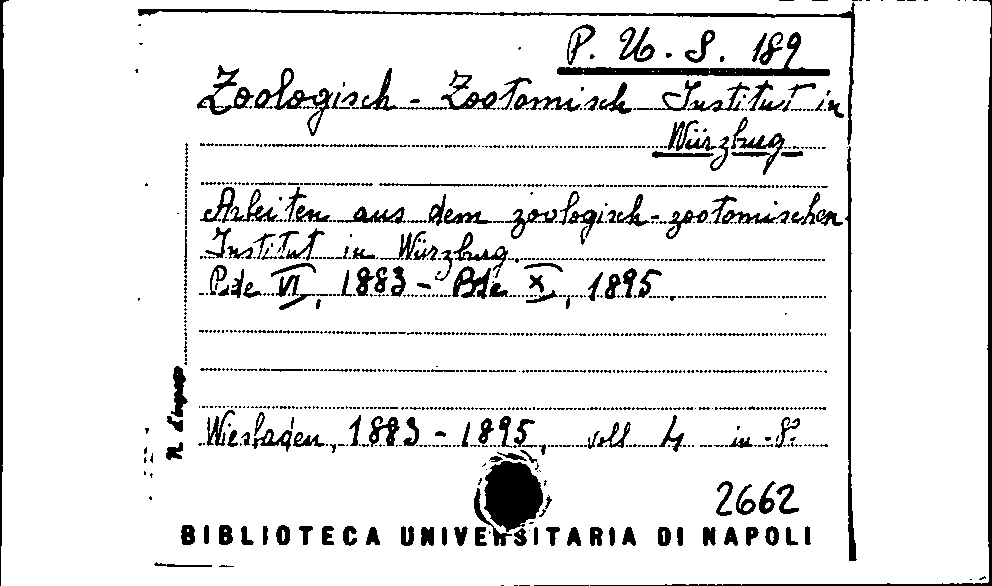 P. U. S. 189
Zoologisch - Zootomisch Institut in
Würzburg
Arbeiten aus dem zoologisch-zootomischen
Institut in Würzburg.
Bde VI, 1883 - Bde X, 1895.
N. d'ingresso
Wiesbaden, 1883 - 1895, voll 4 in -8º
2662
BIBLIOTECA UNIVERSITARIA DI NAPOLI